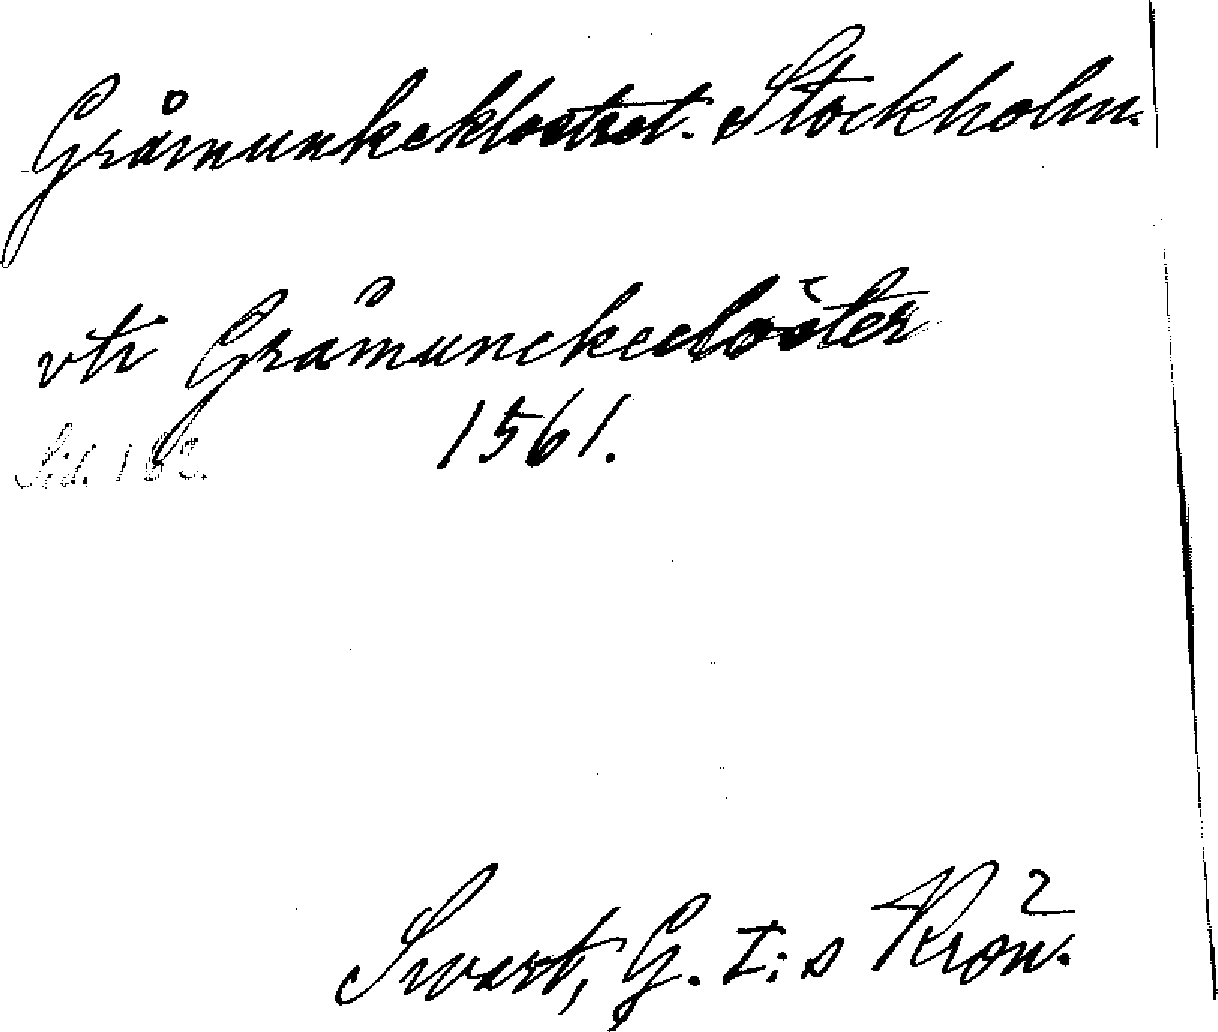 Gråmunkeklostret. Stockholm.
vti Gråmunckecloster
1561.
Sid. 162.
Swart, G. I:s Krön.